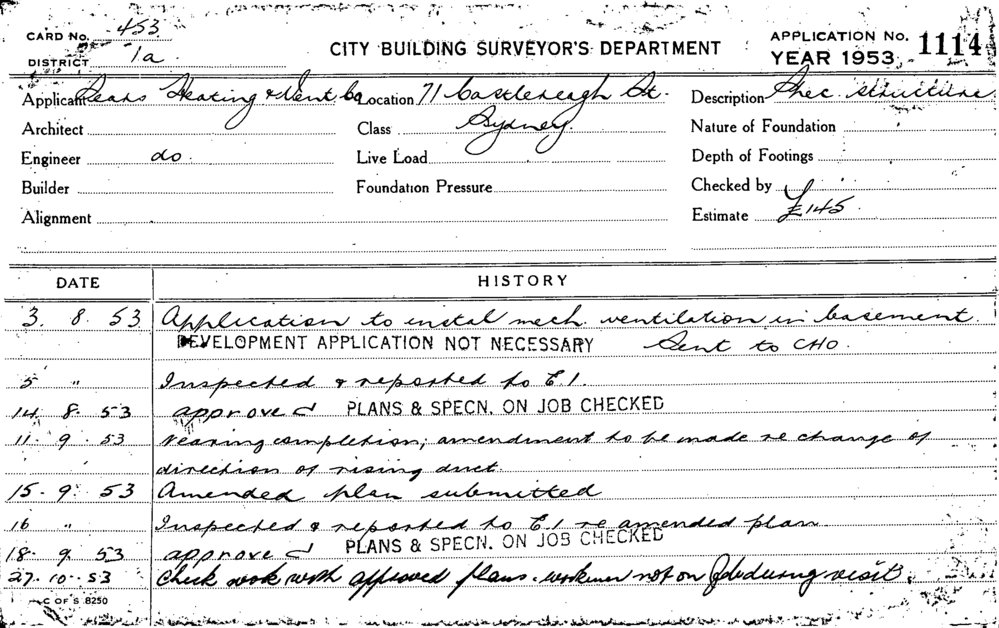 CARD No. 453
DISTRICT 1a
CITY BUILDING SURVEYOR'S DEPARTMENT
APPLICATION No. 1114
YEAR 1953
Applicant Sears Heating & Vent. Co Location 71 Castlereagh St. Description
Architect Class Sydney. Nature of Foundation
Engineer do Live Load Depth of Footings
Builder Foundation Pressure Checked by
Alignment Estimate £145
DATE HISTORY
3. 8. 53 Application to instal mech. ventilation in basement.
DEVELOPMENT APPLICATION NOT NECESSARY Sent to CHO.
5 " Inspected & reported to E.I.
14. 8. 53 approved PLANS & SPECN. ON JOB CHECKED
11. 9. 53 nearing completion; amendment to be made re change of
direction of rising duct
15. 9. 53 Amended plan submitted
16 " Inspected & reported to E.I re amended plan
18. 9. 53 approved PLANS & SPECN. ON JOB CHECKED
27. 10. 53 Check work with approved plans. workmen not on Job during visit.
C OF S 8250